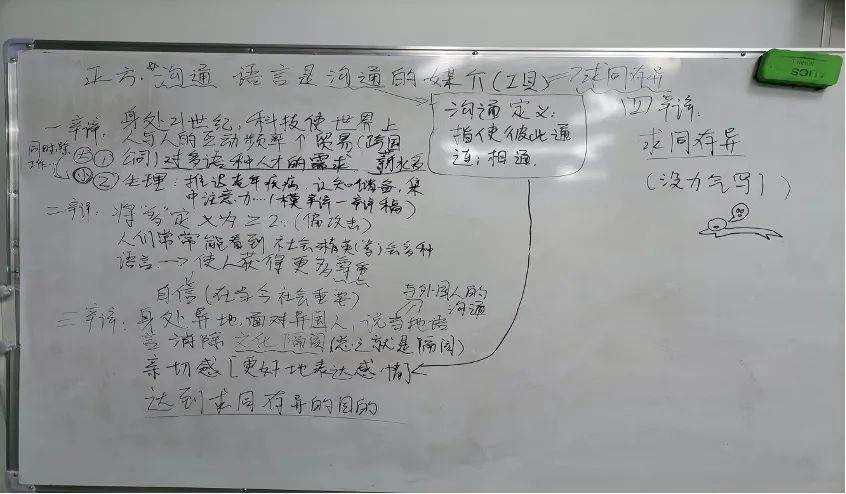 正方: 沟通 语言是沟通的媒介(工具)→求同存异
沟通定义:
指使彼此通
连;相通.
一辩: 身处21世纪,科技使世界上
人与人的互动频率↑贸易(跨国
同时除
工作...
① 公司)对多语种人才的需求 薪水多
② 生理: 推迟老年疾病,认知储备,集
中注意力...(模辩一辩稿)
二辩: 将"多"定义为≥2.(偏攻击)
人们常常能看到社会精英(者)会多种
语言.→使人获得更多尊重
自信(在当今社会重要)
与外国人的
沟通
三辩: 身处异地,面对异国人,说当地语
言消除文化隔阂(总之就是隔阂)
亲切感[更好地表达感情]
达到求同存异的目的
四辩:
求同存异
(没力气写)